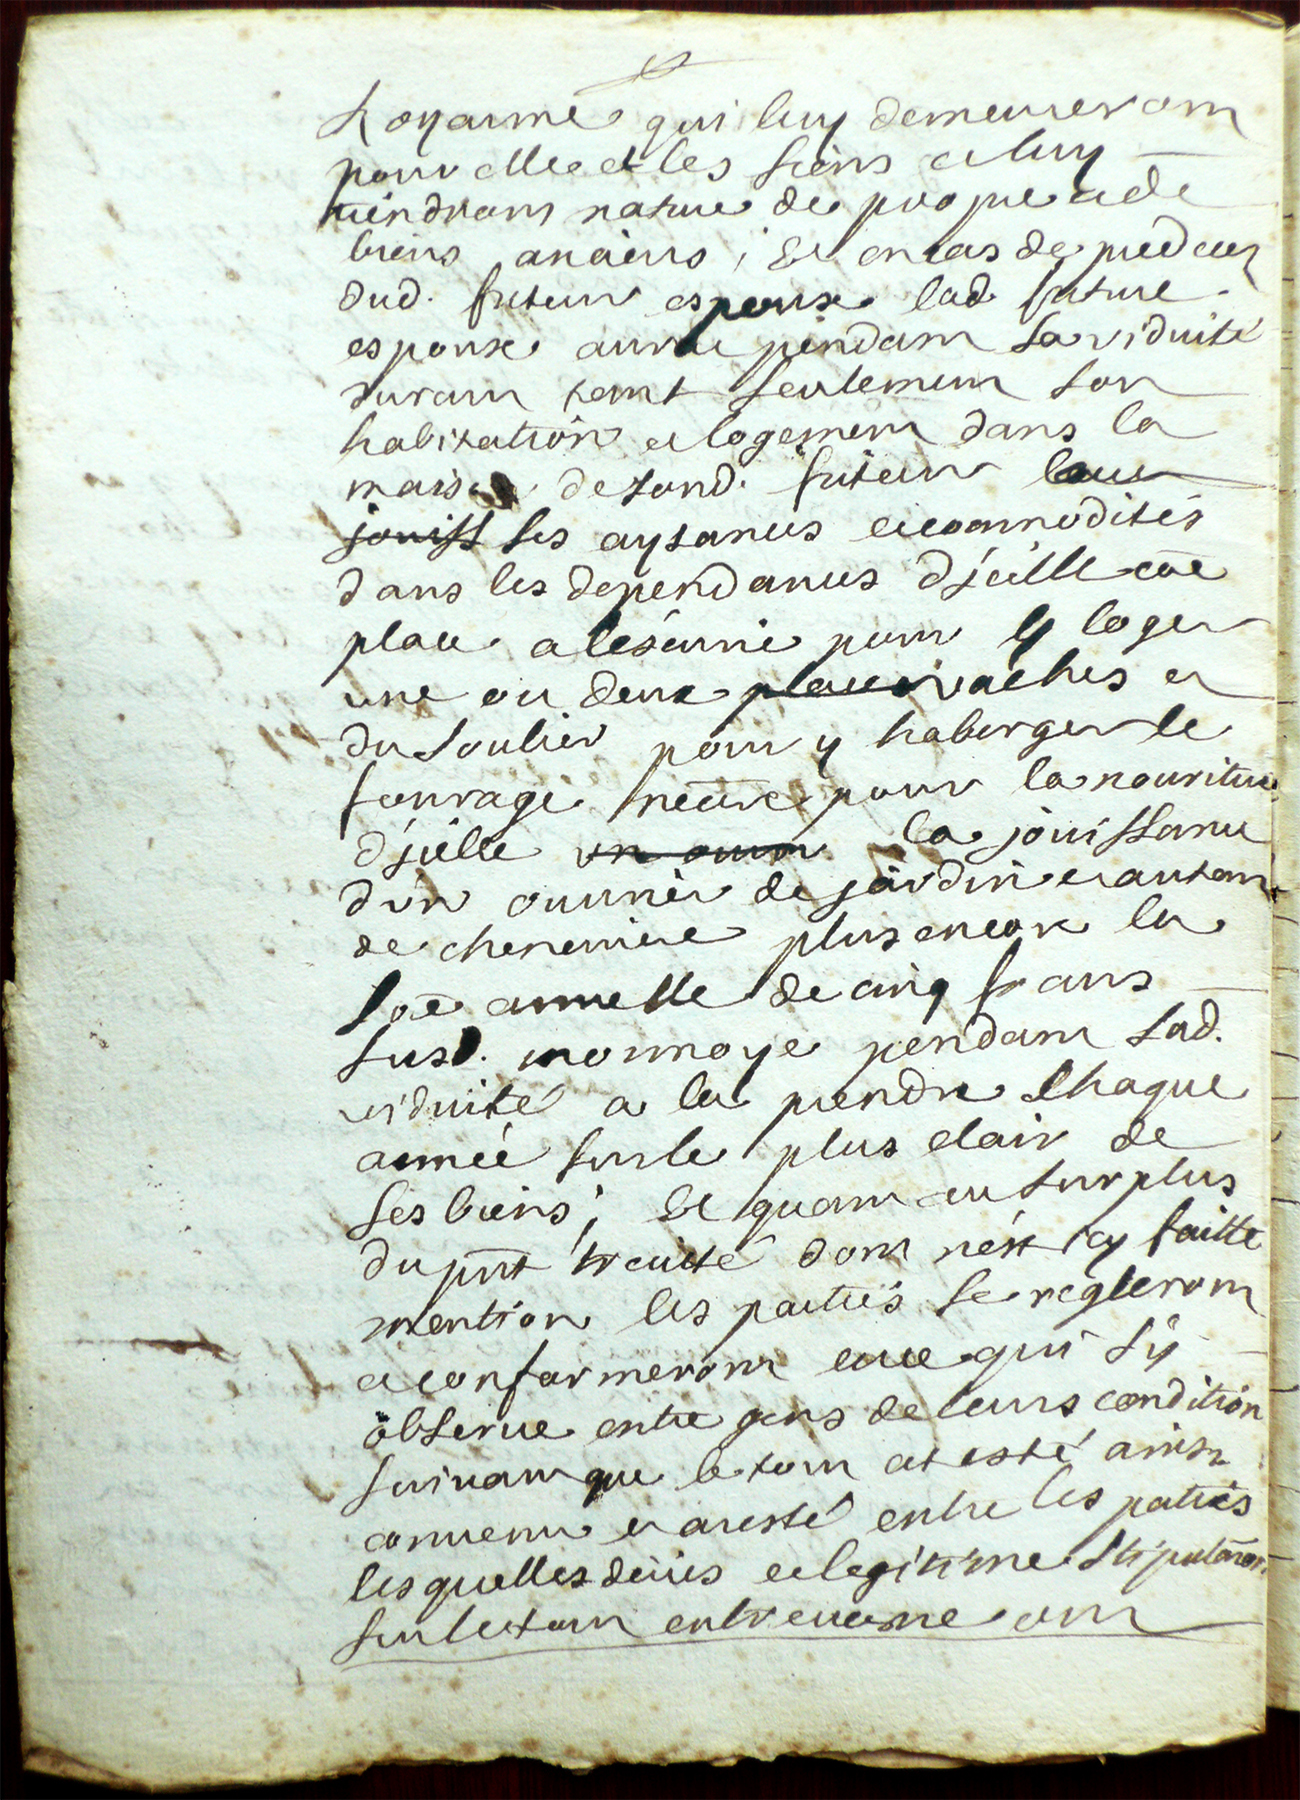 Royaume qui luy demeureront
pour elle et les siens et luy
tiendront nature de propre et de
biens anciens ; Et en cas de predeces
dud. futeur espoux lad. future
espouse aurat pendant sa viduité
durant tant seulement son
habitation et logement dans la
maison de sond. futeur
jouiss ses aysances et commodités
dans les dependances d'jcelle coe
place a l'escurie pour y loger
une ou deux places vaches et
du soulier pour y haberger le
fourage nécâre pour la nouriture
d'jcelle un ouvri la jouissance
d'un ouvrier de jardin et autant
de cheneviere plus encor la
soe annuelle de cinq frans
susd. monnoye pendant sad.
viduité a la prendre chaque
année sur le plus clair de
ses biens ; Et quant au surplus
du pnt traitté dont n'est icy faitte
mention les parties se regleront
et conformeront en ce qui s'y
observe entre gens de leurs condition
suivant que le tout at esté ainsy
convenu et aresté entre les parties
lesquelles et legitime stipulaôn
sur le tout entrevenue ont